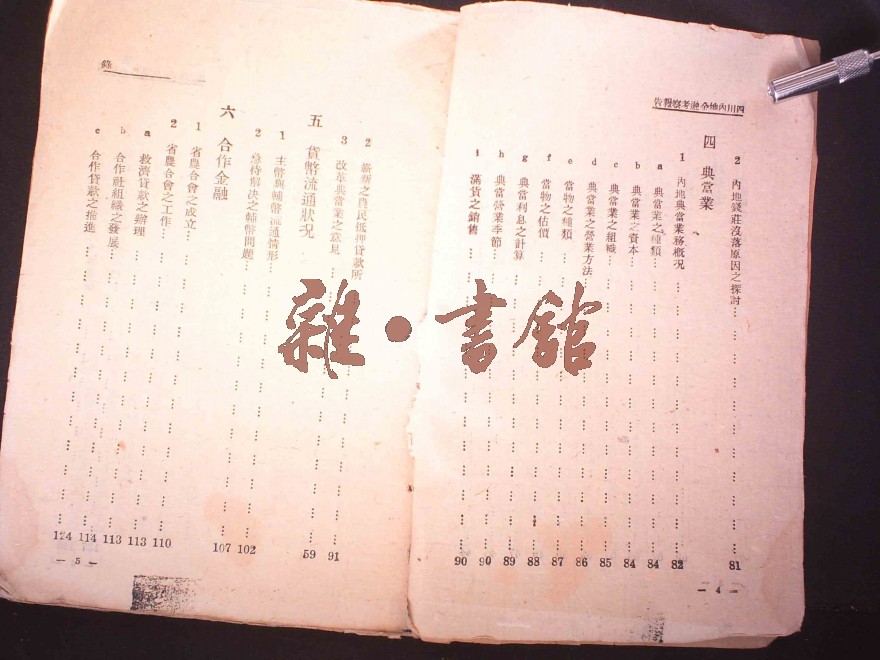 四川內地金融考察報告
2 內地錢莊沒落原因之探討 81
四 典當業
1 內地典當業務概況 82
a 典當業之種類 84
b 典當業之資本 84
c 典當業之組織 85
d 典當業之營業方法 86
e 當物之種類 87
f 當物之估價 88
g 典當利息之計算 89
h 典當營業季節 90
i 滿貨之銷售 90
— 4 —
錄
2 嶄新之農民抵押貸款所 91
3 改革典當業之意見 59
五 貨幣流通狀况
1 主幣與輔幣流通情形 102
2 急待解決之輔幣問題 107
六 合作金融
1 省農合會之成立 110
2 省農合會之工作 113
a 救濟貸款之辦理 113
b 合作社組織之發展 114
c 合作貸款之推進 124
— 5 —
雜•書館